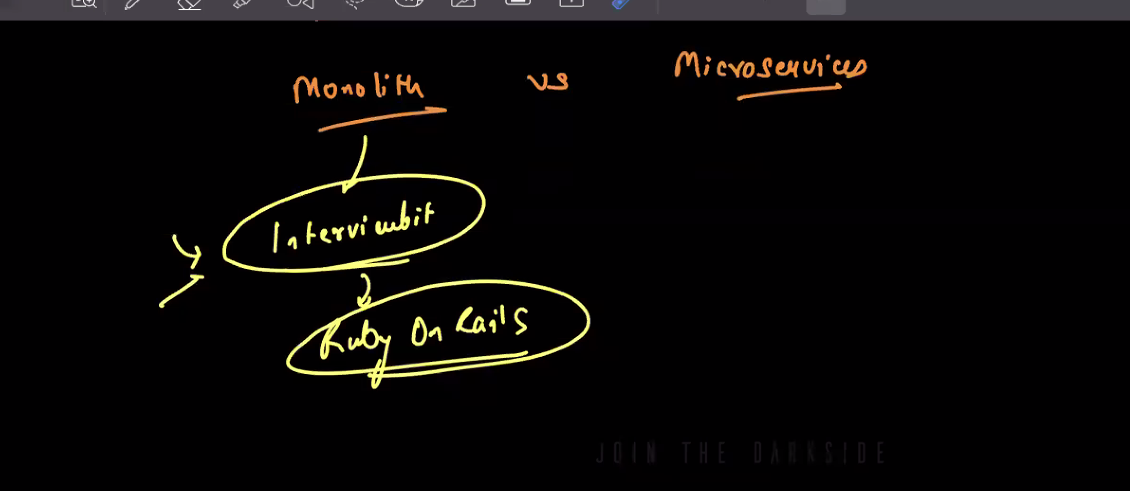 Monolith vs Microservices
Interviewbit
Ruby On Rails
JOIN THE DARKSIDE